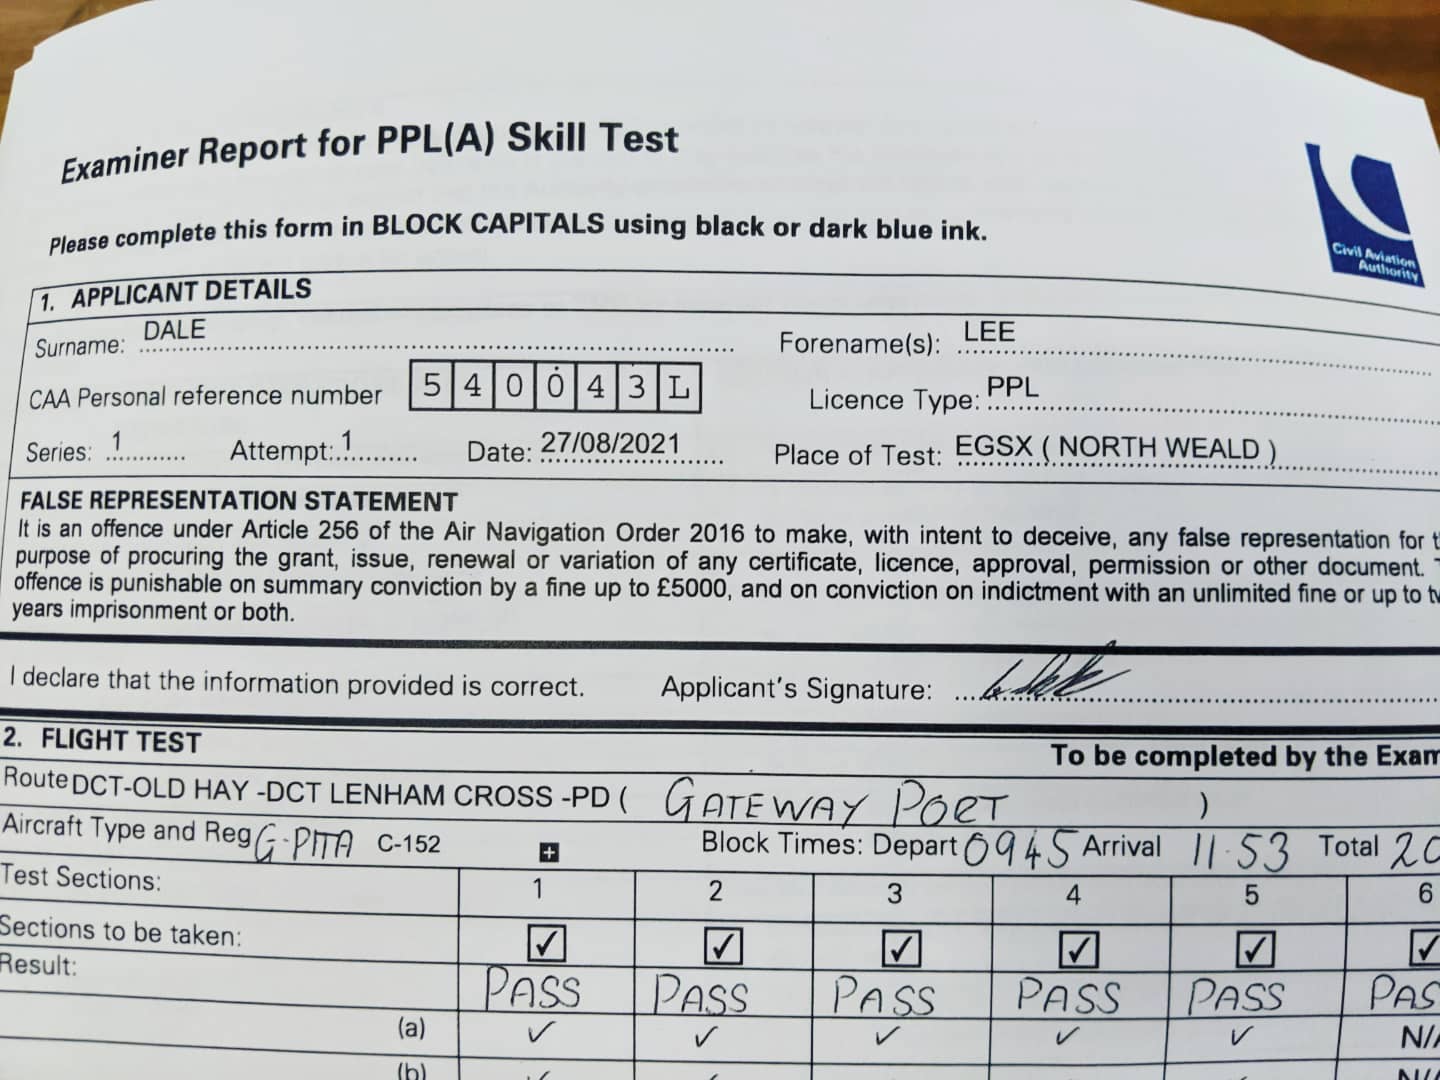 Examiner Report for PPL(A) Skill Test
Civil Aviation
Authority
Please complete this form in BLOCK CAPITALS using black or dark blue ink.
1. APPLICANT DETAILS
Surname: DALE Forename(s): LEE
CAA Personal reference number 540043L Licence Type: PPL
Series: 1 Attempt: 1 Date: 27/08/2021 Place of Test: EGSX ( NORTH WEALD )
FALSE REPRESENTATION STATEMENT
It is an offence under Article 256 of the Air Navigation Order 2016 to make, with intent to deceive, any false representation for
purpose of procuring the grant, issue, renewal or variation of any certificate, licence, approval, permission or other document.
offence is punishable on summary conviction by a fine up to £5000, and on conviction on indictment with an unlimited fine or up to
years imprisonment or both.
I declare that the information provided is correct. Applicant's Signature:
2. FLIGHT TEST To be completed by the Exam
Route DCT-OLD HAY -DCT LENHAM CROSS -PD ( GATEWAY PORT )
Aircraft Type and Reg G-PITA C-152 Block Times: Depart 0945 Arrival 11.53 Total 20
Test Sections: 1 2 3 4 5 6
Sections to be taken: ✓ ✓ ✓ ✓ ✓ ✓
Result: PASS PASS PASS PASS PASS PAS
(a) ✓ ✓ ✓ ✓ ✓ N/
(b)